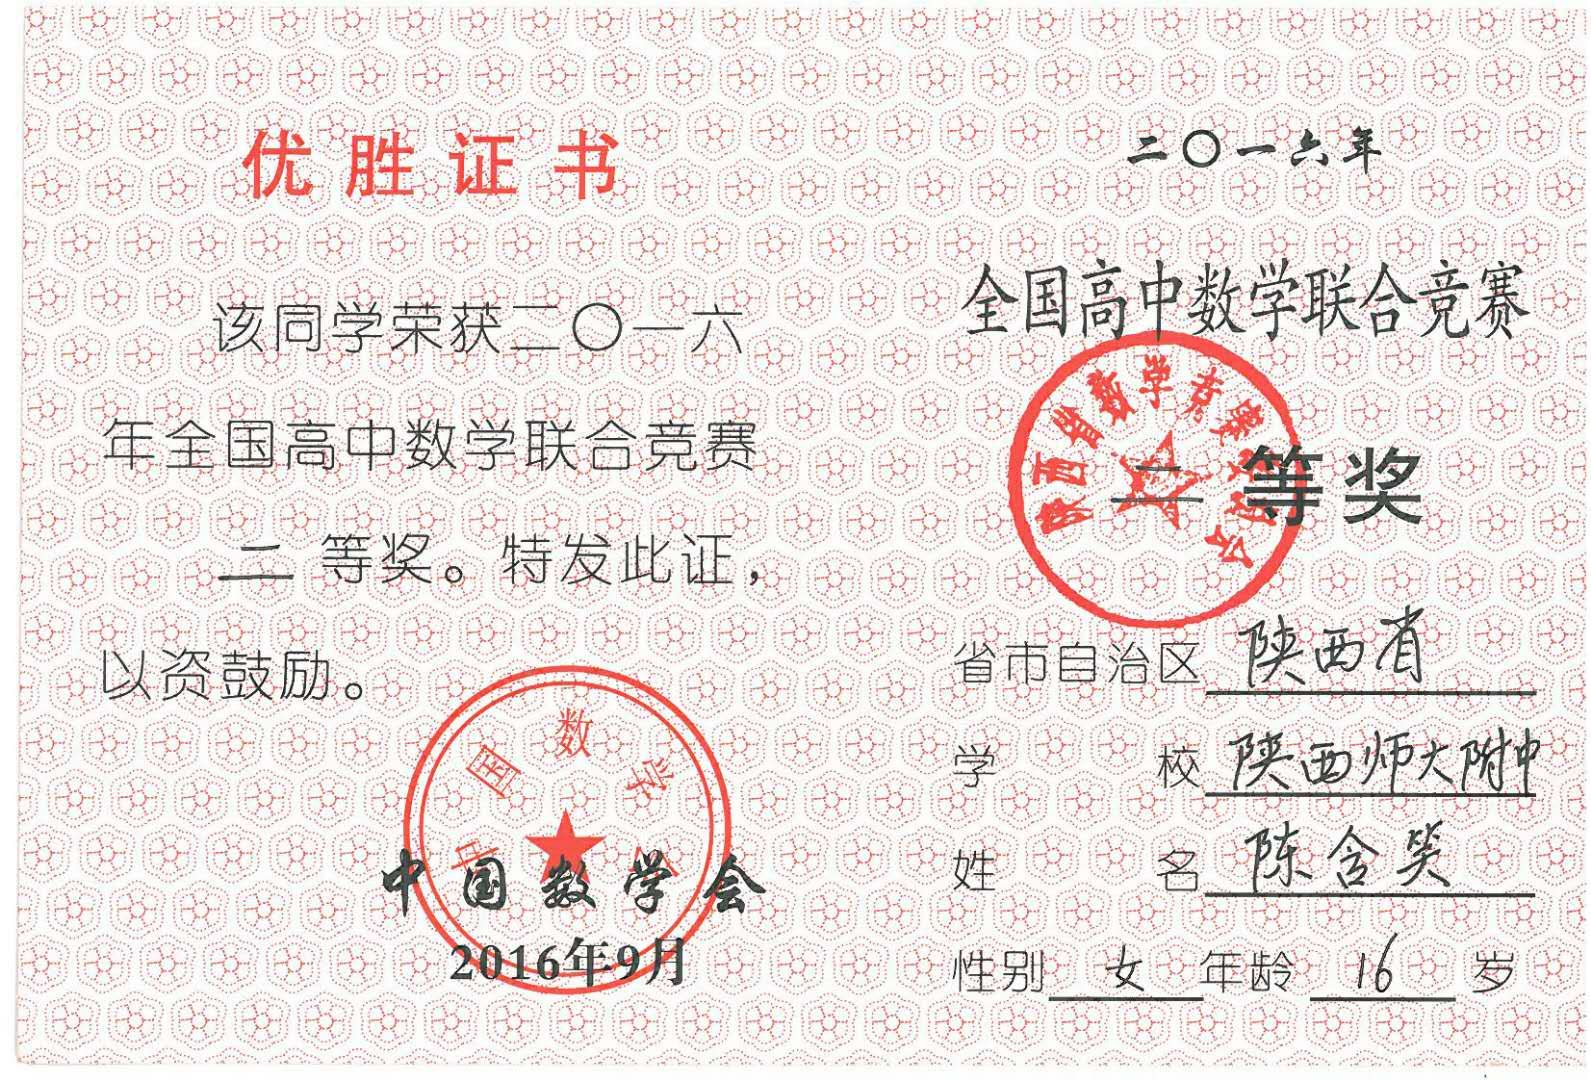 优胜证书
该同学荣获二〇一六
年全国高中数学联合竞赛
二等奖。特发此证，
以资鼓励。
中国数学会
中国数学会
2016年9月
二〇一六年
全国高中数学联合竞赛
陕西省数学竞赛委员会
二等奖
省市自治区 陕西省
学校 陕西师大附中
姓名 陈含笑
性别 女 年龄 16 岁